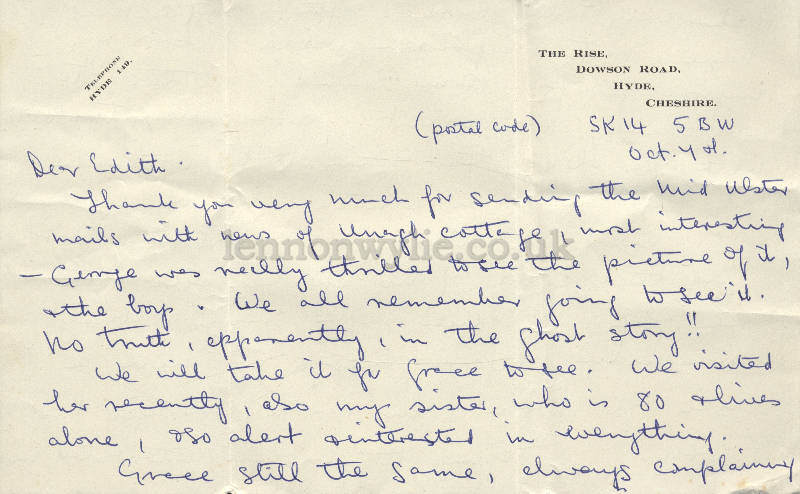 TELEPHONE
HYDE 149.
THE RISE,
DOWSON ROAD,
HYDE,
CHESHIRE.
(postal code) SK14 5BW
Oct. 7th.
Dear Edith.
Thank you very much for sending the Mid Ulster
mails with news of Unagh cottage, most interesting
lennonwylie.co.uk
- George was really thrilled to see the picture of it,
& the boys. We all remember going to see it.
No truth, apparently, in the ghost story!!
We will take it for Grace to see. We visited
her recently, also my sister, who is 80 & lives
alone, & so alert & interested in everything.
Grace still the same, always complaining